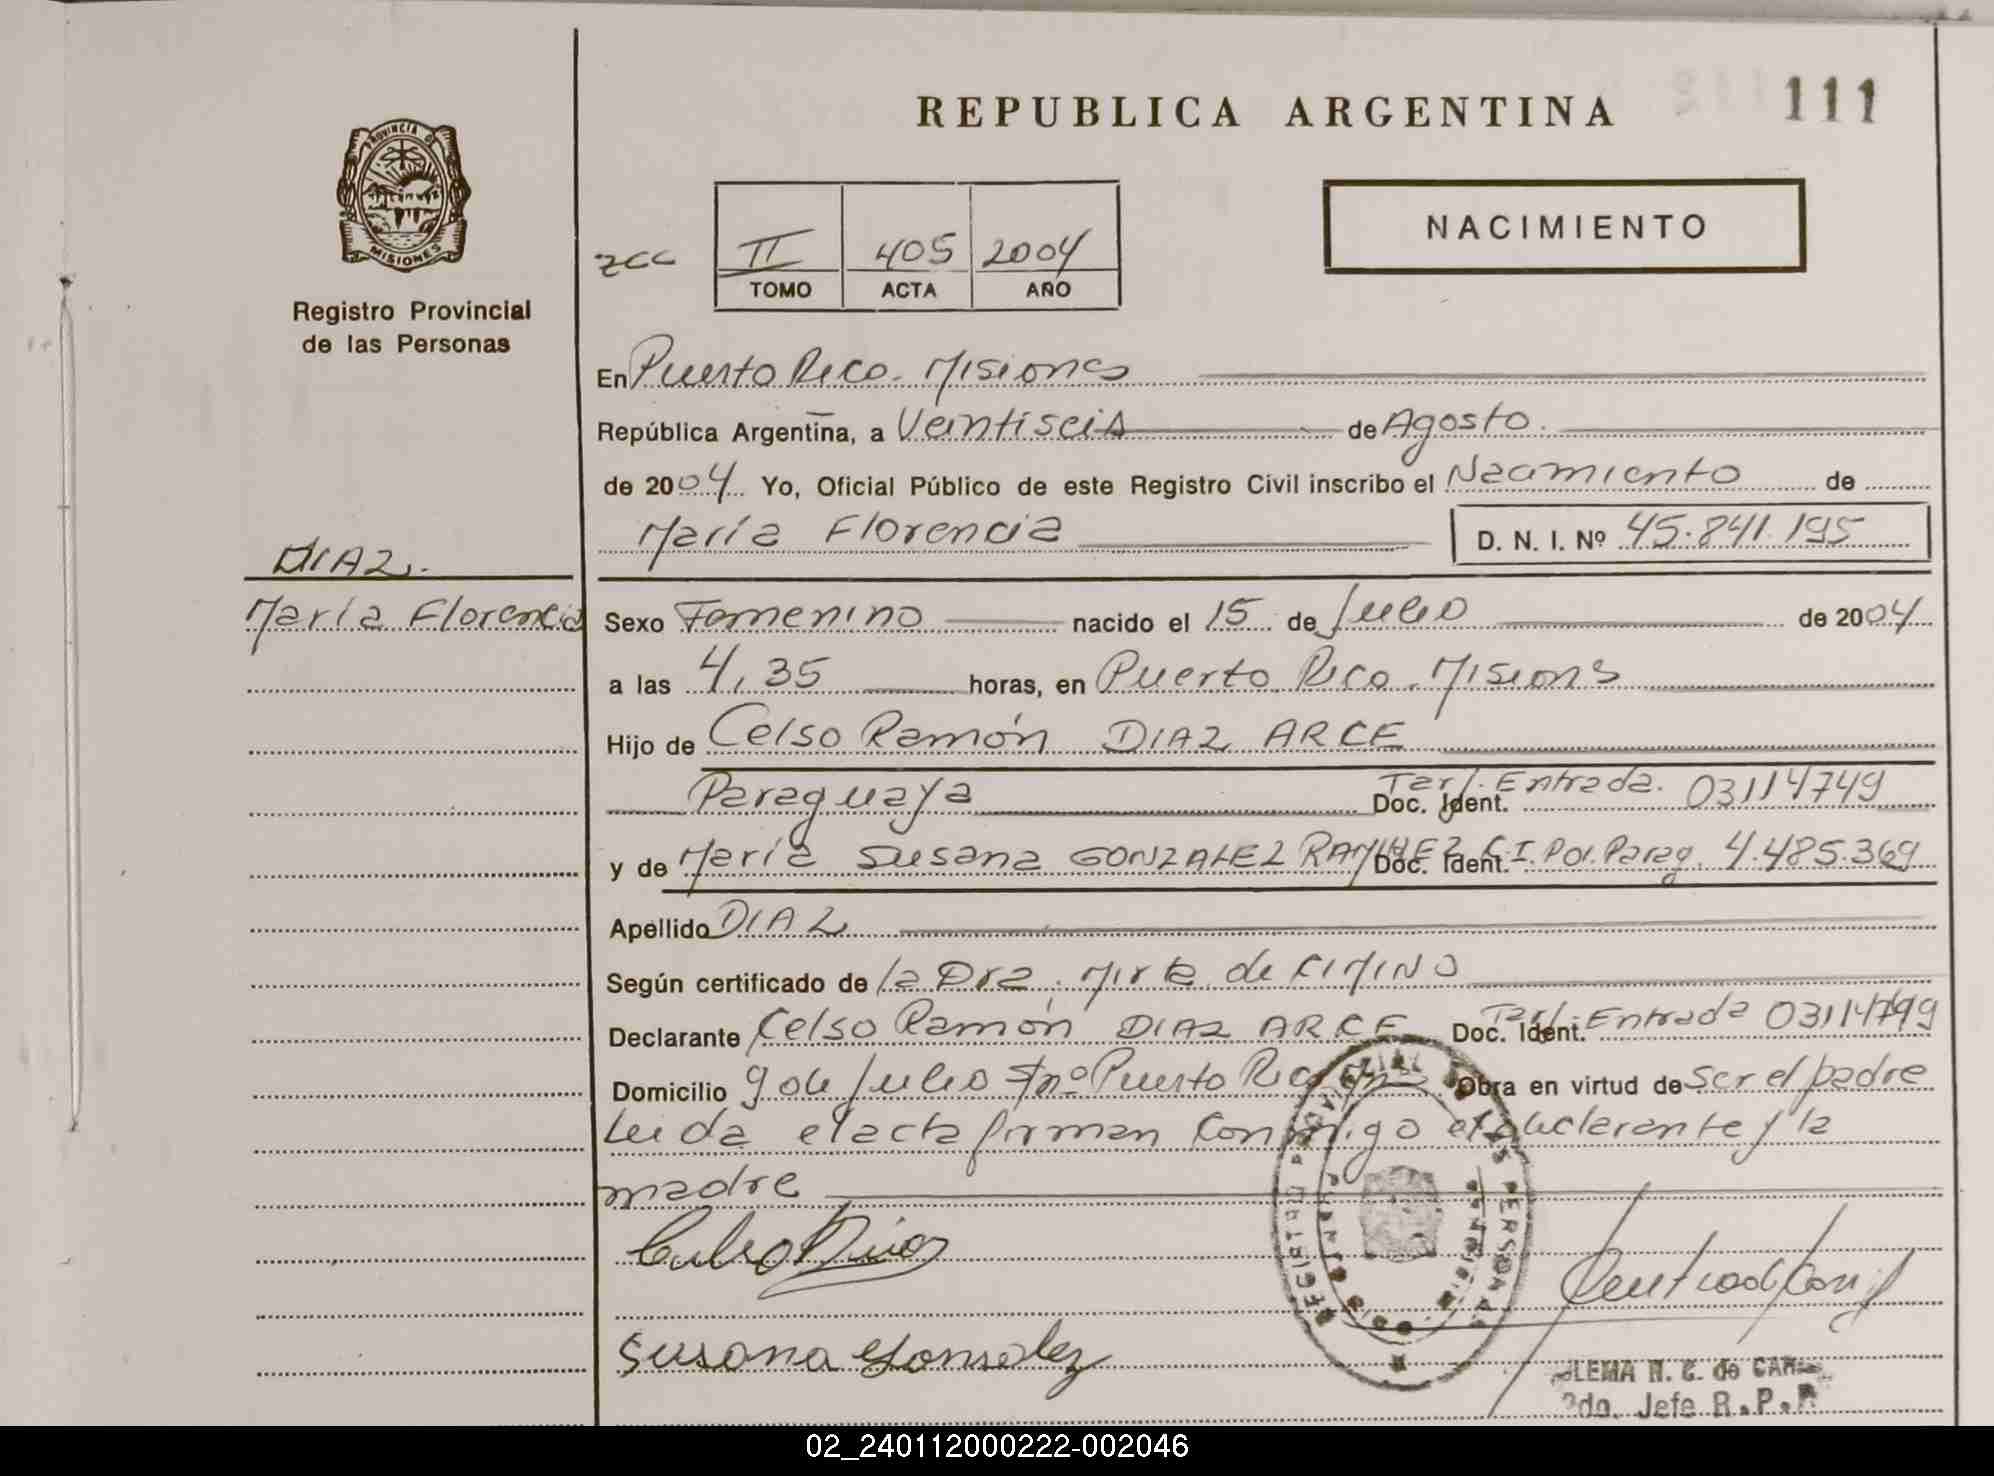 REPUBLICA ARGENTINA
111
PROVINCIA DE
MISIONES
Registro Provincial
de las Personas
II 405 2004
TOMO ACTA AÑO
NACIMIENTO
En Puerto Rico. Misiones
República Argentina, a Veintiseis de Agosto.
de 2004 Yo, Oficial Público de este Registro Civil inscribo el Nacimiento de
María Florencia D. N. I. Nº 45.841.195
DIAZ.
María Florencia
Sexo Femenino nacido el 15 de Julio de 2004
a las 4,35 horas, en Puerto Rico. Misiones
Hijo de Celso Ramón DIAZ ARCE
Paraguaya Doc. Ident. Tarj. Entrada. 03114749
y de María Susana GONZALEZ RAMIREZ Doc. Ident. C.I. Pol. Parag. 4.485.369
Apellido DIAZ
Según certificado de la Dra. Mirta de CIMINO
Declarante Celso Ramón DIAZ ARCE Doc. Ident. Tarj. Entrada 03114799
Domicilio 9 de Julio s/nº Puerto Rico Obra en virtud de ser el padre
Leida el acta firman conmigo el declarante y la
madre
REGISTRO PROVINCIAL DE LAS PERSONAS
Susana Gonzalez
N. C. de
2do. Jefe R.P.P.
02_240112000222-002046